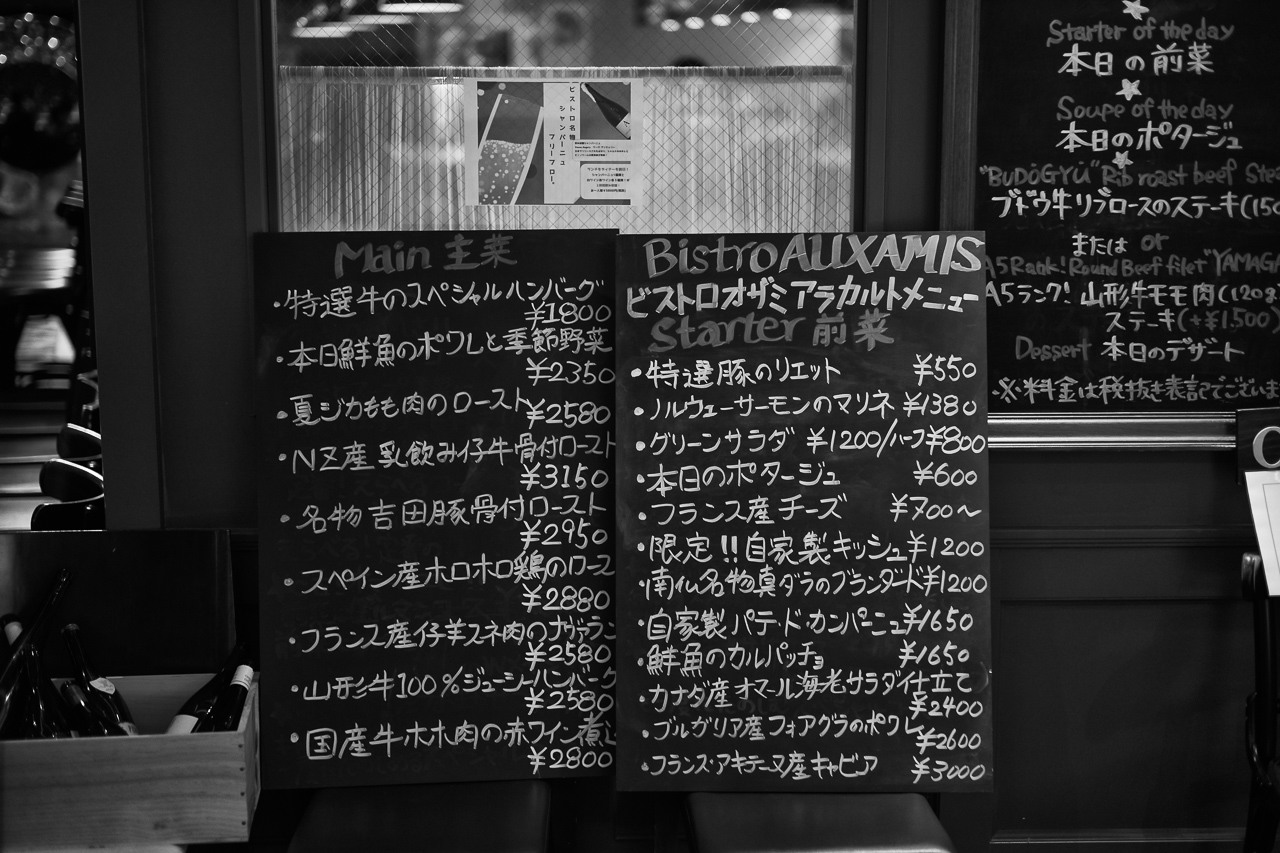 ビストロ名物
シャンパーニュ
フリーフロー。
Main 主菜
・特選牛のスペシャルハンバーグ
¥1800
・本日鮮魚のポワレと季節野菜
¥2350
・夏ジカもも肉のロースト
¥2580
・NZ産乳飲み仔牛骨付ロースト
¥3150
・名物吉田豚骨付ロースト
¥2950
・スペイン産ホロホロ鶏のロース
¥2880
・フランス産仔羊スネ肉のナヴァラン
¥2580
・山形牛100%ジューシーハンバーグ
¥2580
・国産牛ホホ肉の赤ワイン煮込
¥2800
Bistro AUXAMIS
ビストロオザミアラカルトメニュー
Starter 前菜
・特選豚のリエット ¥550
・ノルウェーサーモンのマリネ ¥1380
・グリーンサラダ ¥1200/ハーフ¥800
・本日のポタージュ ¥600
・フランス産チーズ ¥700〜
・限定!!自家製キッシュ ¥1200
・南仏名物真ダラのブランダード ¥1200
・自家製パテ・ド・カンパーニュ ¥1650
・鮮魚のカルパッチョ ¥1650
・カナダ産オマール海老サラダ仕立て
¥2400
・ブルガリア産フォアグラのポワレ
¥2600
・フランス・アキテーヌ産キャビア ¥3000
Starter of the day
本日の前菜
Soupe of the day
本日のポタージュ
"BUDOGYU" Rib roast beef Stea
ブドウ牛リブロースのステーキ(150
または or
A5Rank! Round Beef filet "YAMAGA
A5ランク! 山形牛モモ肉(120g
ステーキ(+¥1.500)
Dessert 本日のデザート
・※料金は税抜き表記でございま